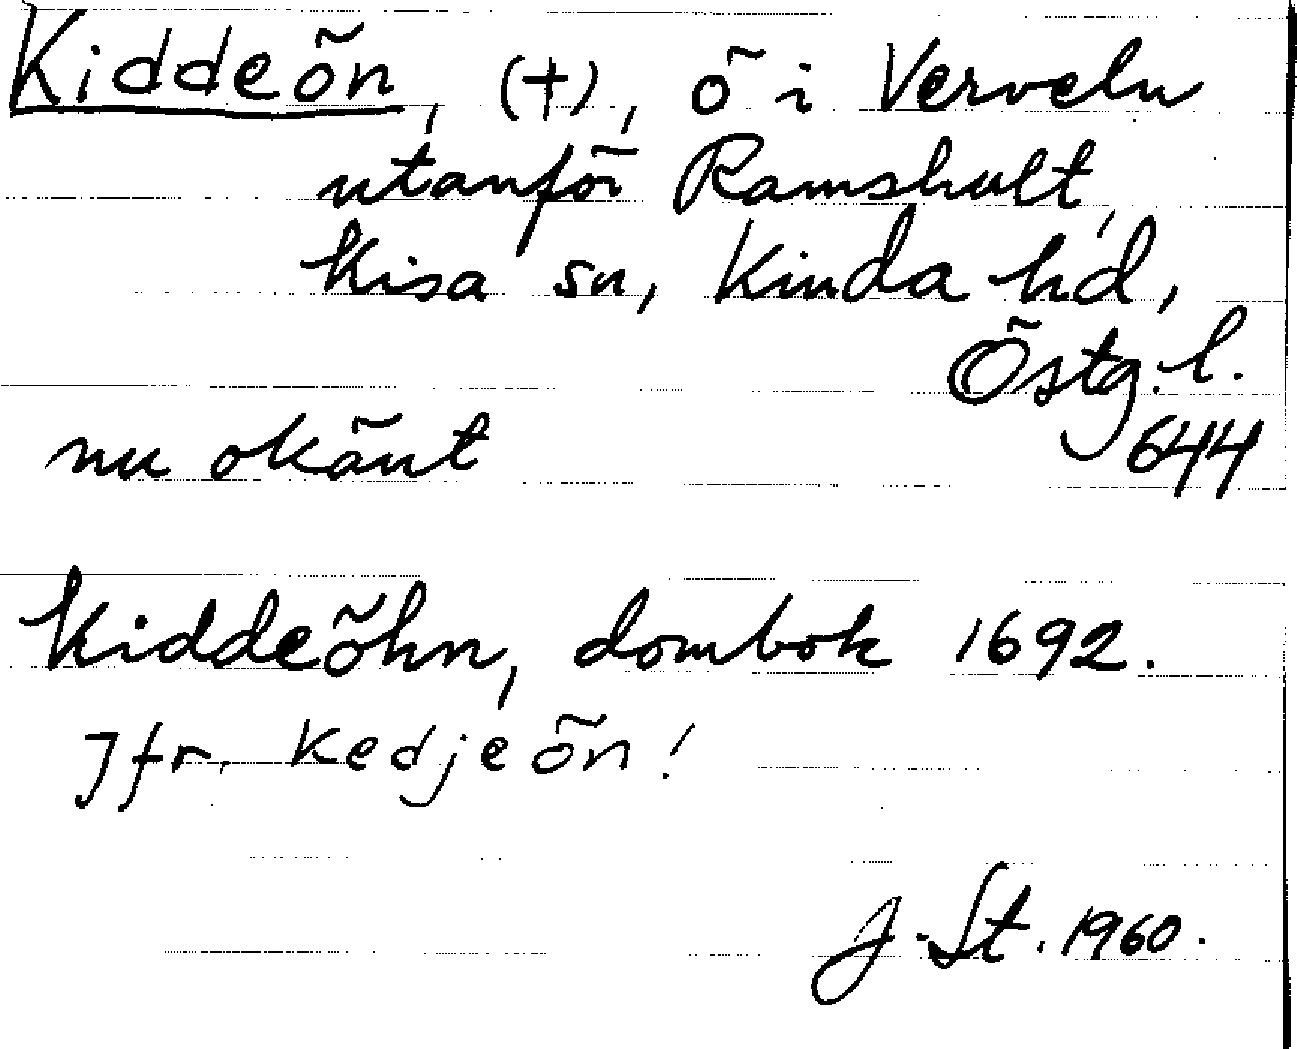 Kiddeön, (†), ö i Verveln
utanför Ramshult,
Kisa sn, Kinda hd,
Östg. l.
nu okänt 644
Kiddeöhn, dombok 1692.
Jfr. Kedjeön!
J. St. 1960.